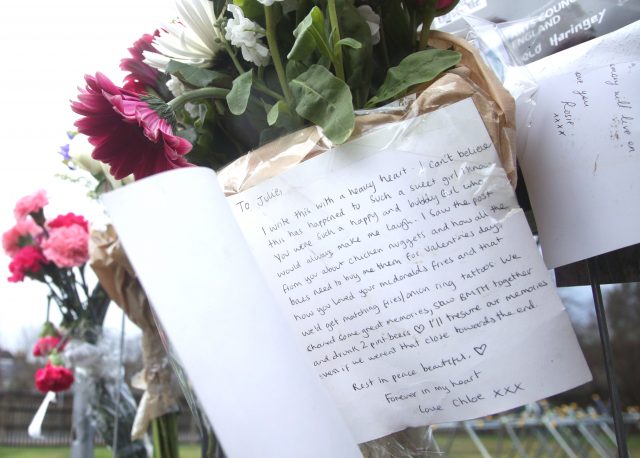 To Julie,
I write this with a heavy heart. I can't believe
this has happened to such a sweet girl I know
You were such a happy and bubbly Girl who
would always make me laugh. I saw the post
from you about chicken nuggets and how all the
baes need to buy me them for valentines days
how you loved your mcdonalds fries and that
we'd get matching fries/onion ring tattoos. We
shared some great memories, saw BMTH together
and drunk 2 pint beers ♡ I'll tresure our memories
even if we weren't that close towards the end.
Rest in peace beautiful. ♡
Forever in my heart
Love Chloe xxx
COUNC
ENGLAND
Haringey
will live on
love you
Rosie
xxxx